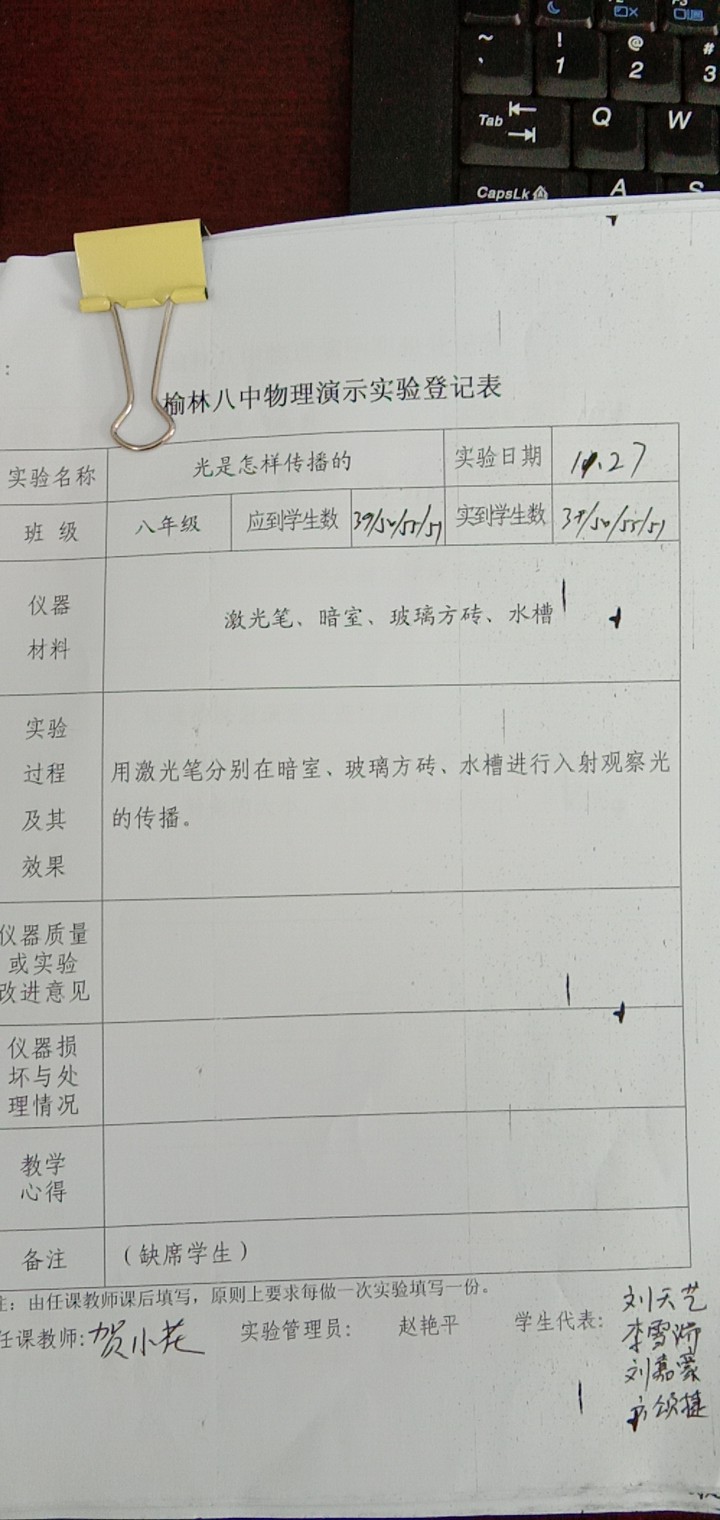 ~ ! @ #
、 1 2 3
Tab Q W
CapsLk A S
榆林八中物理演示实验登记表
实验名称 光是怎样传播的 实验日期
班 级 八年级 应到学生数 39/50/55/51 实到学生数
仪器
材料
激光笔、暗室、玻璃方砖、水槽
实验
过程
及其
效果
用激光笔分别在暗室、玻璃方砖、水槽进行入射观察光
的传播。
仪器质量
或实验
改进意见
仪器损
坏与处
理情况
教学
心得
备注 （缺席学生）
注：由任课教师课后填写，原则上要求每做一次实验填写一份。
任课教师:贺小花 实验管理员： 赵艳平 学生代表：
刘天艺
李雪娇
刘嘉豪